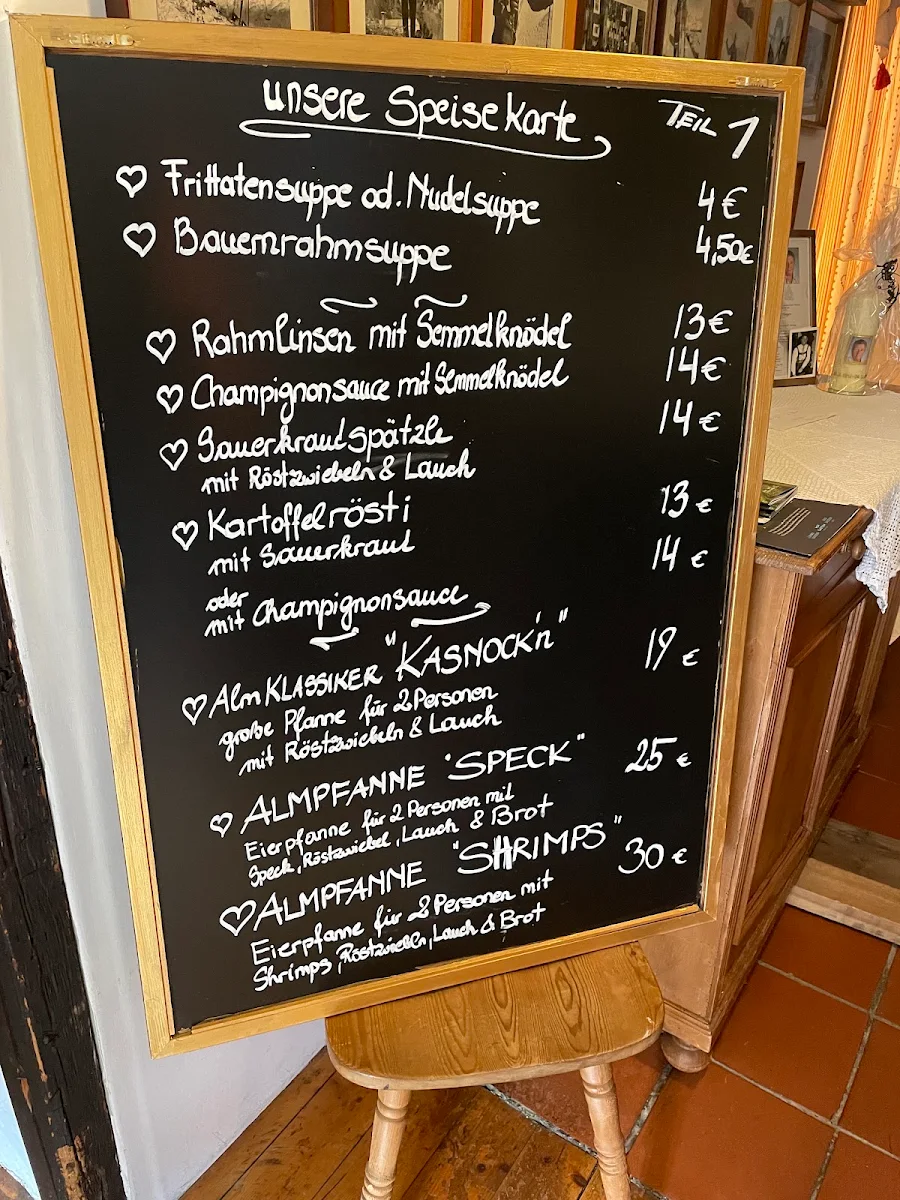 unsere Speisekarte TEIL 1
Frittatensuppe od. Nudelsuppe 4€
Bauernrahmsuppe 4,50€
Rahmlinsen mit Semmelknödel 13€
Champignonsauce mit Semmelknödel 14€
Sauerkrautspätzle 14€
mit Röstzwiebeln & Lauch
Kartoffelrösti 13€
mit Sauerkraut
14€
oder
mit Champignonsauce
Alm KLASSIKER "KASNOCK'n" 19€
große Pfanne für 2 Personen
mit Röstzwiebeln & Lauch
ALMPFANNE "SPECK" 25€
Eierpfanne für 2 Personen mit
Speck, Röstzwiebel, Lauch & Brot
ALMPFANNE "SHRIMPS" 30€
Eierpfanne für 2 Personen mit
Shrimps, Röstzwiebeln, Lauch & Brot